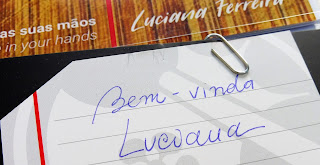 as suas mãos
in your hands
Luciana Ferreira
Bem-vinda
Luciana